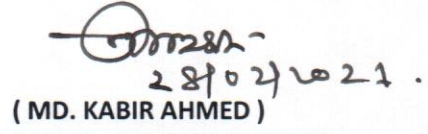 28/02/2021.
( MD. KABIR AHMED )